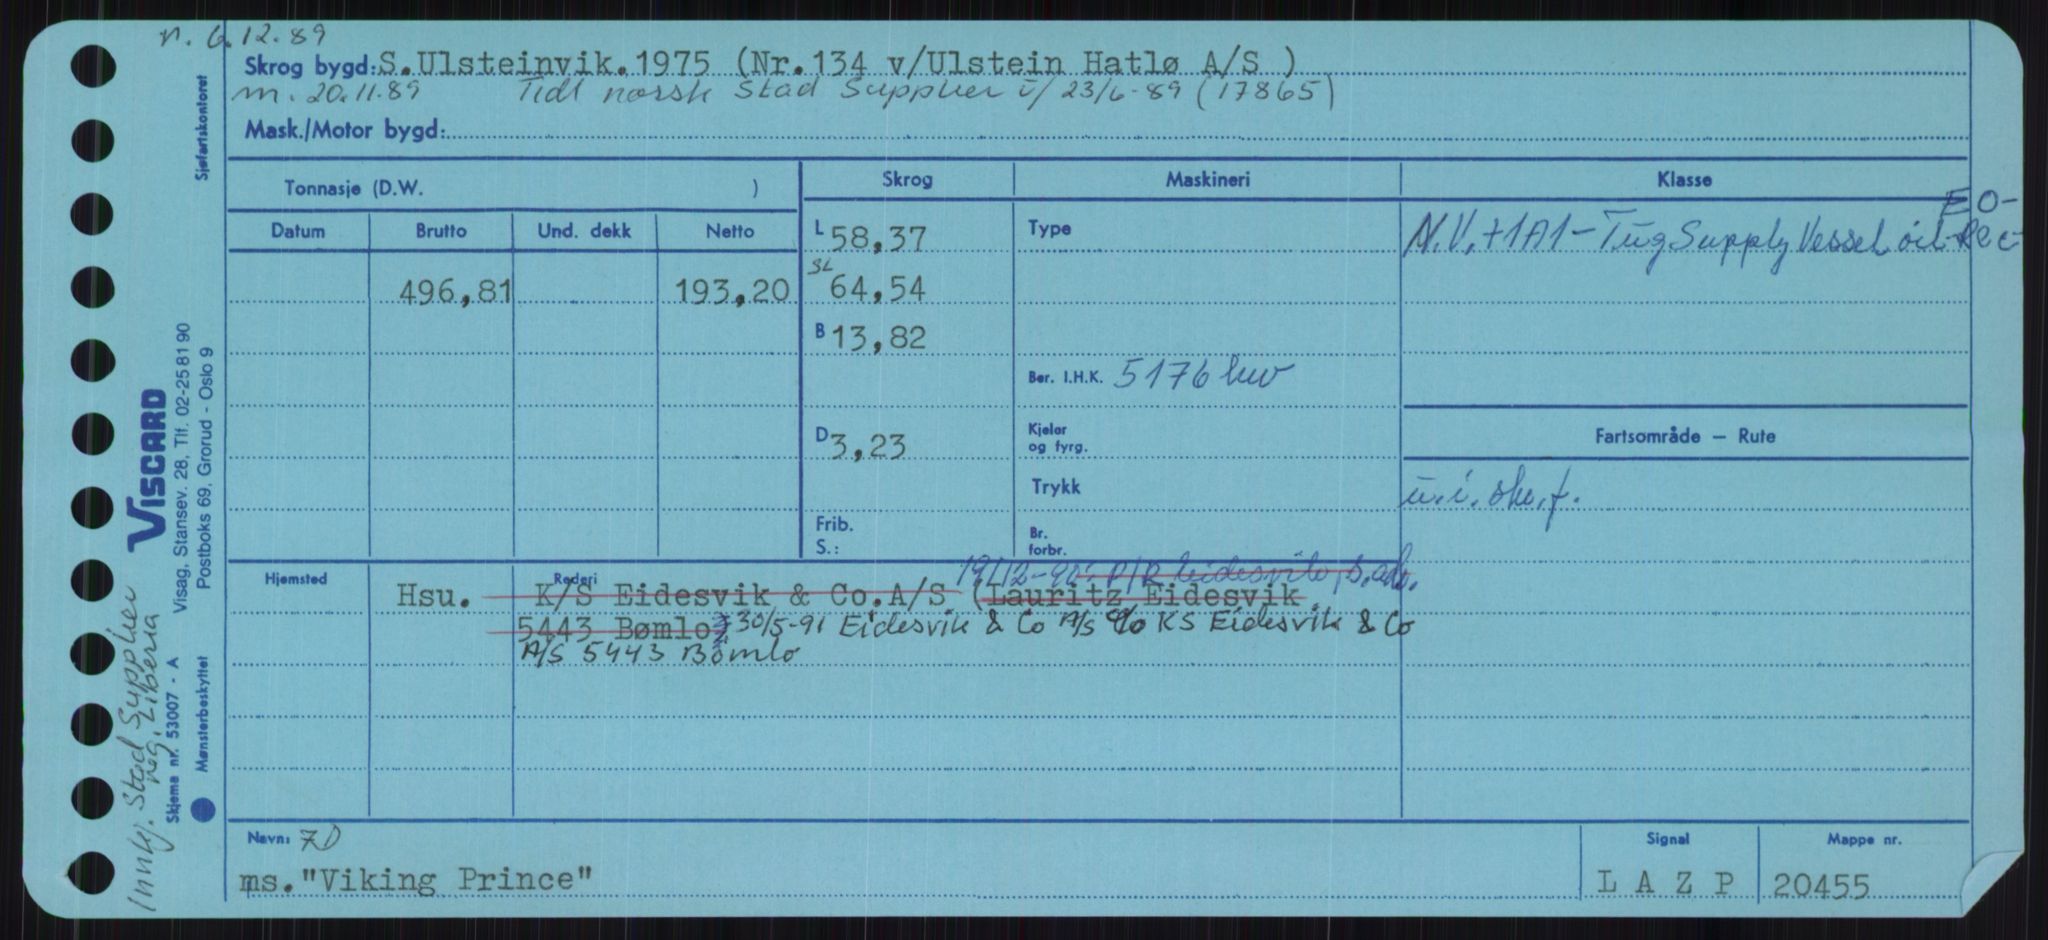 n. 6.12.89
Skrog bygd: S.Ulsteinvik.1975 (Nr.134 v/Ulstein Hatlø A/S )
m. 20.11.89 Tidl norsk Stad Supplier 23/6-89 (17865)
Mask./Motor bygd:
Tonnasje (D.W. )
Skrog Maskineri Klasse
Datum Brutto Und. dekk Netto
L 58,37 Type N.V. +1A1-Tug Supply Vessel oil-Rec EO-
496,81 193,20 SL 64,54
B 13,82
Ber. I.H.K. 5176 kw
D 3,23 Kjeler og fyrg. Fartsområde — Rute
Trykk u.i. sk.f.
Frib. S.: Br. forbr.
Hjemsted Rederi 19/12-90: P/R Eidesvik, s.adr.
Hsu. K/S Eidesvik & Co.A/S (Lauritz Eidesvik
5443 Bømlo) 30/5-91 Eidesvik & Co A/S c/o KS Eidesvik & Co
A/S 5443 Bømlo
Navn: 7D Signal Mappe nr.
ms."Viking Prince" L A Z P 20455
Sjøfartskontoret
VISCARD
Visag, Stansev. 28, Tlf. 02-25 81 90
Postboks 69, Grorud - Oslo 9
Skjema nr. 53007 - A
Mønsterbeskyttet
Innkj. Stad Supplier
reg. Liberia